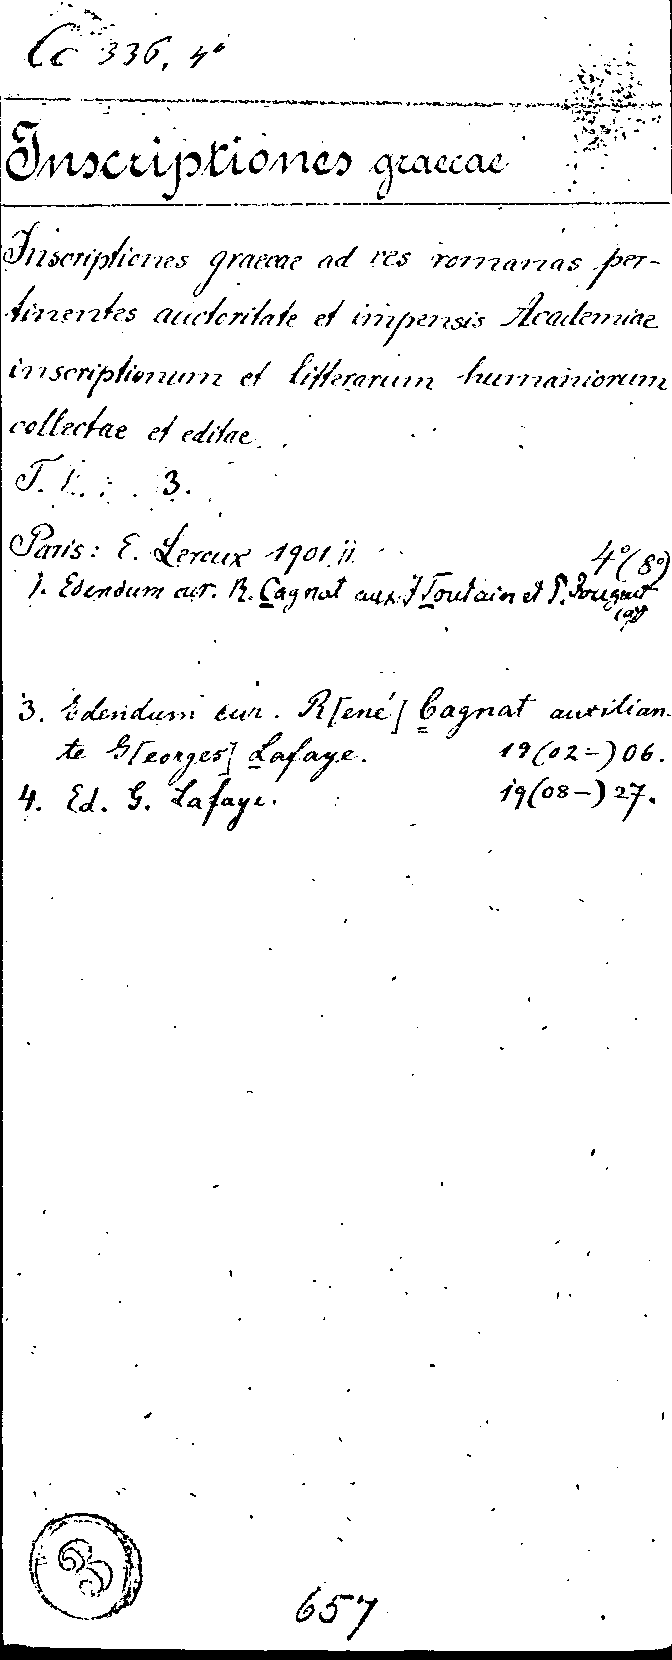 Cc 336, 4°
Inscriptiones graecae
Inscriptiones graecae ad res romanas per-
tinentes auctoritate et impensis Academiae
inscriptionum et litterarum humaniorum
collectae et editae.
T. 1. . . 3.
Paris: E. Leroux 1901 ff.
4° (8°)
1. Edendum cur. R. Cagnat aux. J Toutain et P. Jouguet
3. Edendum cur. R[ené] Cagnat auxilian-
te G[eorges] Lafaye. 19(02-)06.
4. Ed. G. Lafaye. 19(08-)27.
657